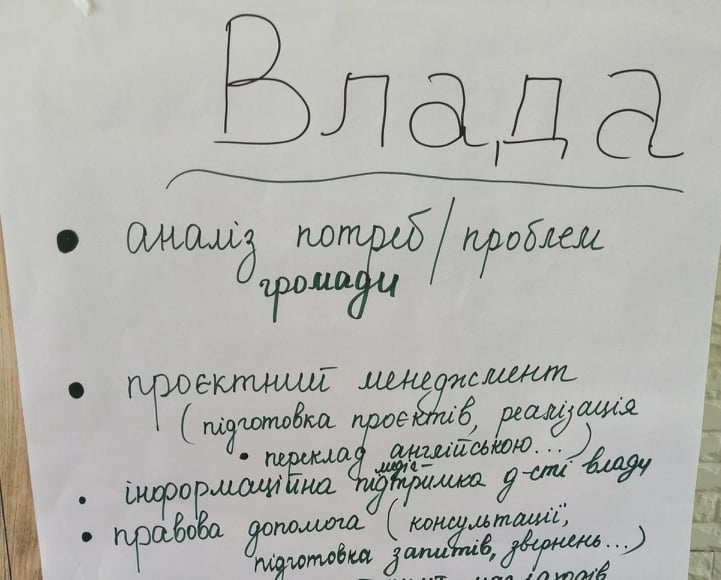 Влада
• аналіз потреб / проблем
громади
• проєктний менеджмент
(підготовка проєктів, реалізація
• переклад англійською...)
медіа-
• інформаційна підтримка д-сті влади
• правова допомога (консультації,
підготовка запитів, звернень...)